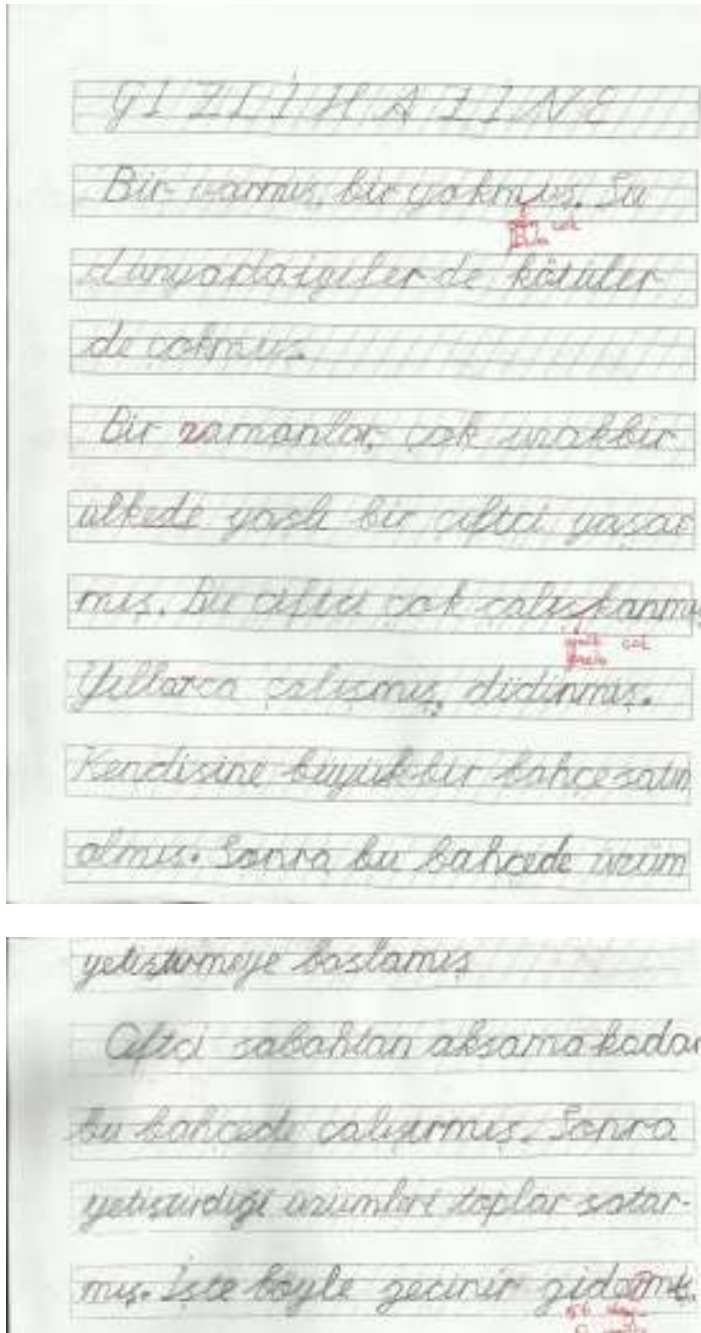 GİZLİ HAZİNE
Bir varmış, bir yokmuş. Şu
dünyada iyiler de kötüler
de çokmuş.
Bir zamanlar, çok uzak bir
ülkede yaşlı bir çiftçi yaşar
mış. Bu çiftçi çok çalışkanmış
Yıllarca çalışmış, didinmiş.
Kendisine büyük bir bahçe satın
almış. Sonra bu bahçede üzüm
yetiştirmeye başlamış
Çiftçi sabahtan akşama kadar
bu bahçede çalışırmış. Sonra
yetiştirdiği üzümleri toplar satar-
mış. İşte böyle geçinir